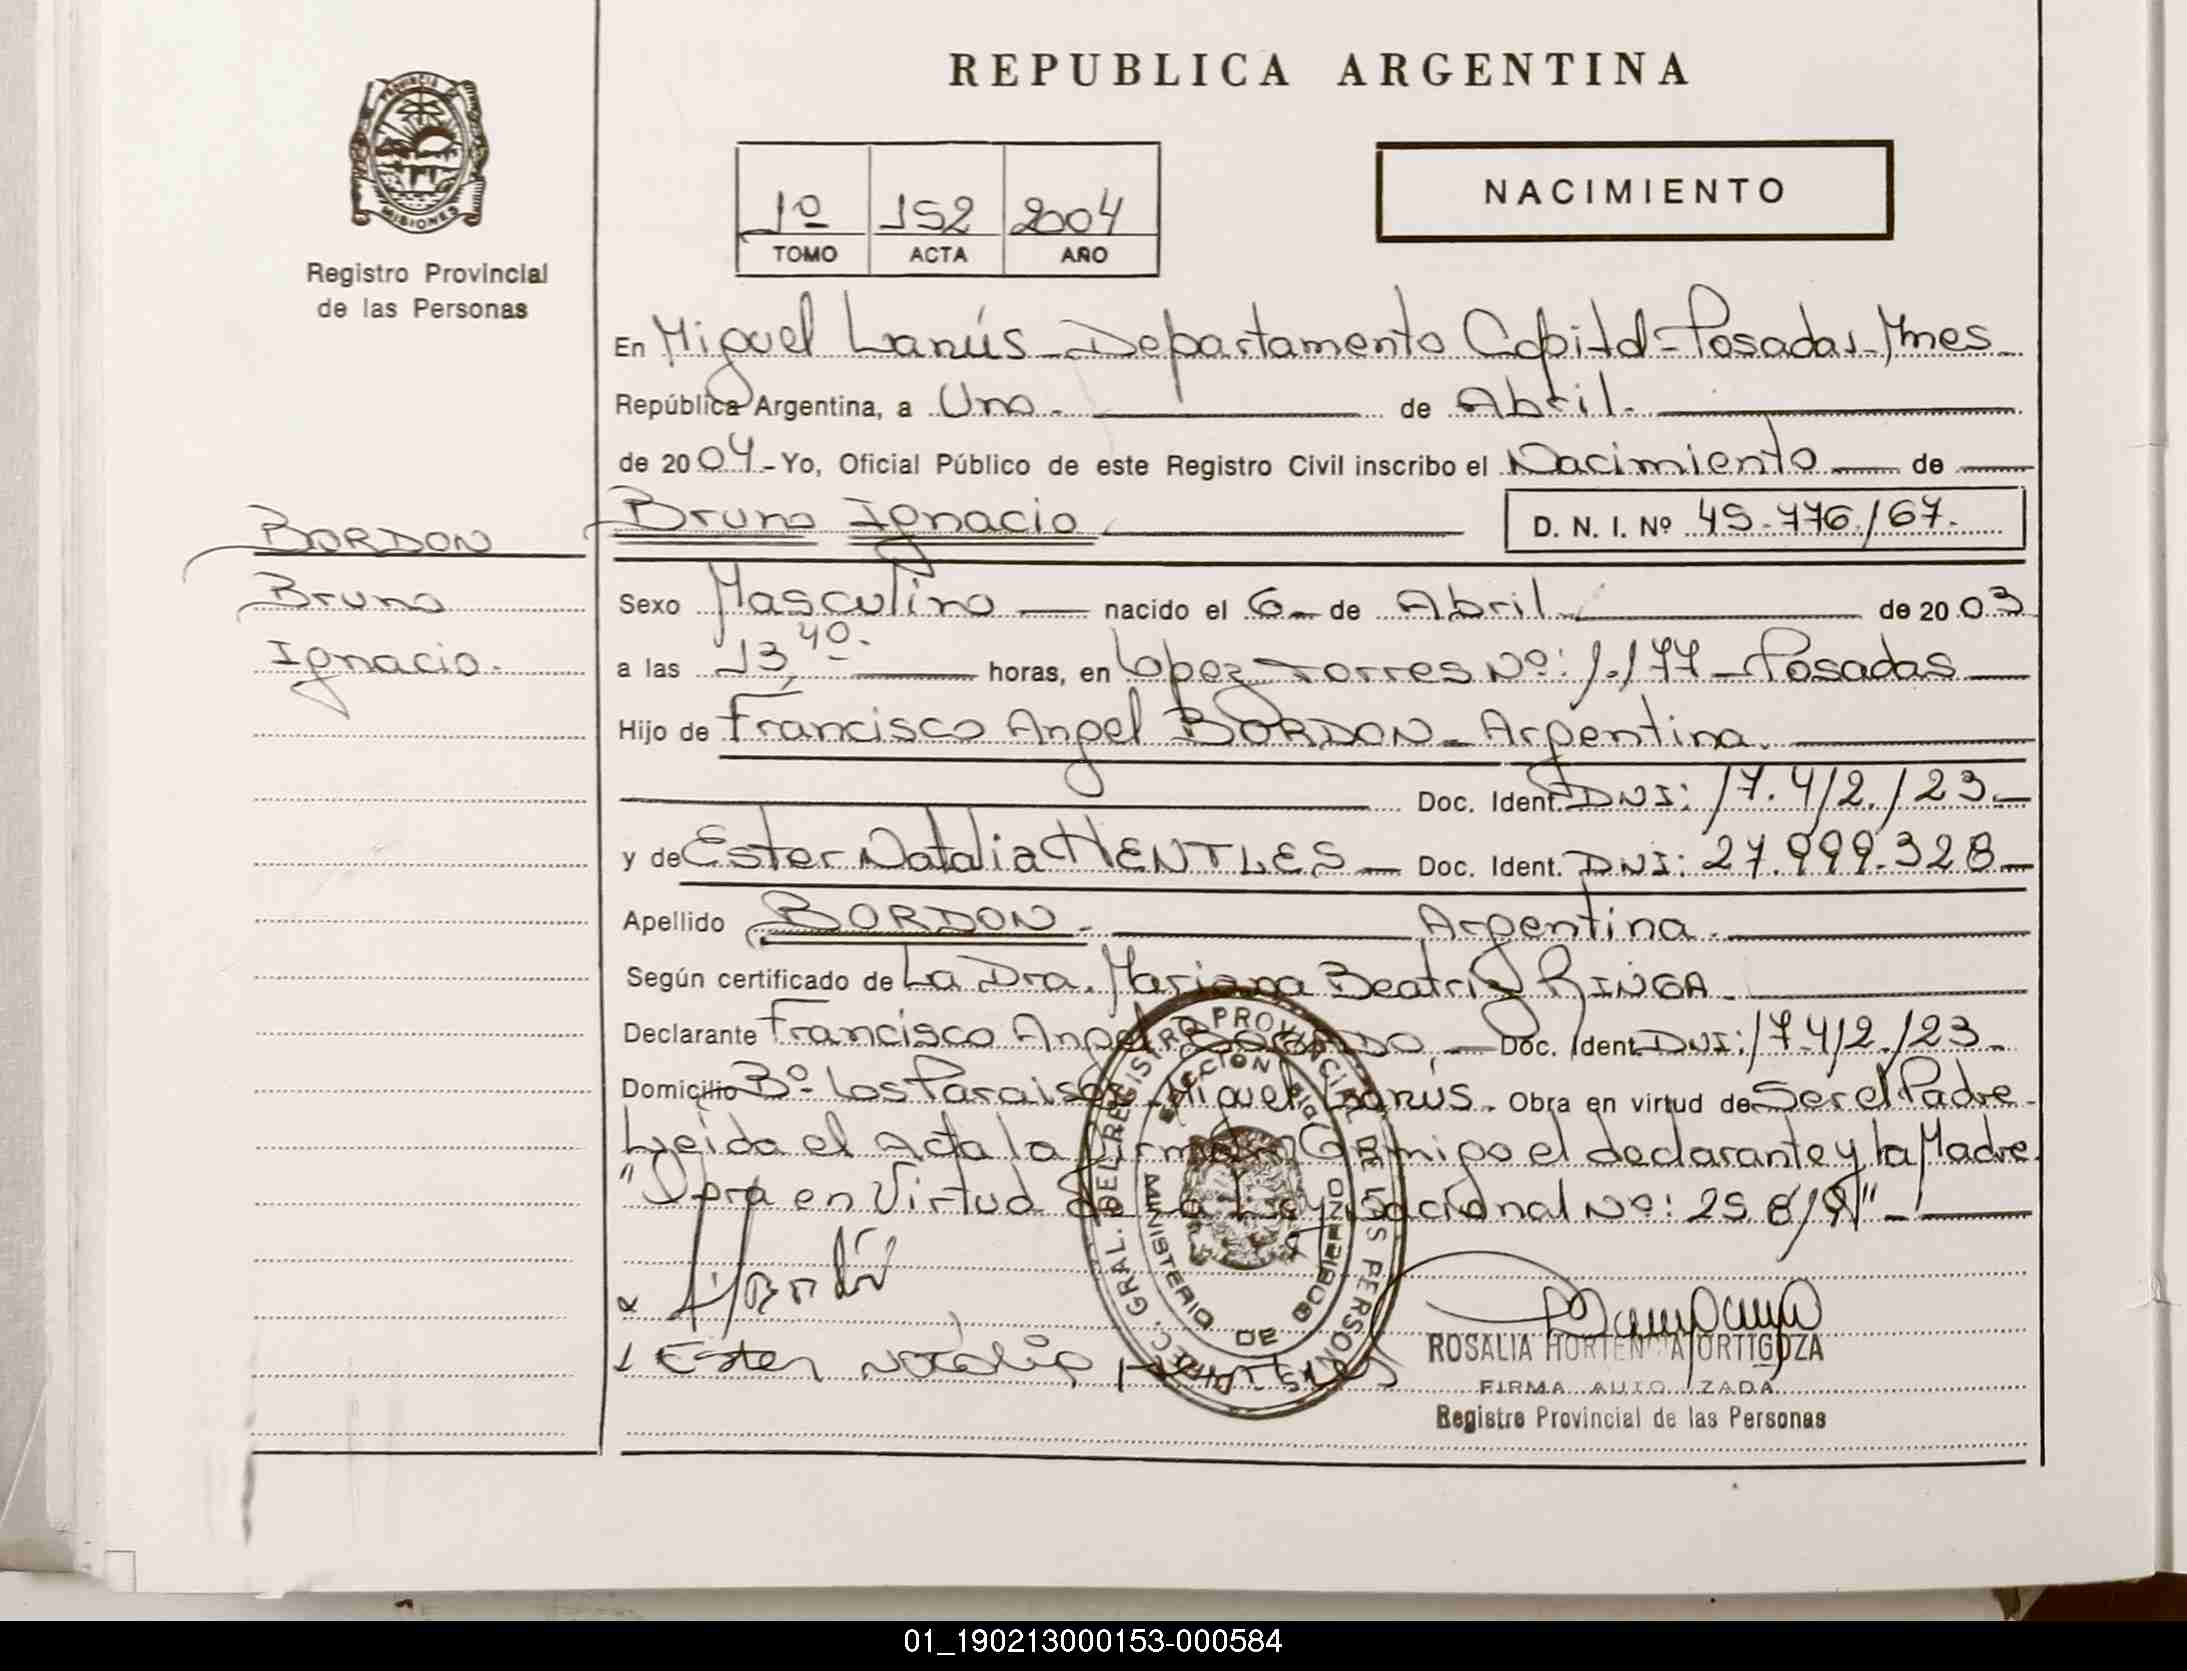 REPUBLICA ARGENTINA
PROVINCIA DE MISIONES
Registro Provincial
de las Personas
1º 152 2004
TOMO ACTA AÑO
NACIMIENTO
En Miguel Lanús - Departamento Capital - Posadas - Mnes
República Argentina, a Uno. de Abril.
de 2004 - Yo, Oficial Público de este Registro Civil inscribo el Nacimiento de
BORDON
Bruno
Ignacio.
Bruno Ignacio D. N. I. Nº 45.776.167.
Sexo Masculino nacido el 6 de Abril de 2003
a las 13,40. horas, en Lopez Torres Nº: 1.177 - Posadas
Hijo de Francisco Angel BORDON - Argentina.
Doc. Ident. DNI: 17.412.123
y de Ester Natalia HENTLES Doc. Ident. DNI: 27.999.328
Apellido BORDON - Argentina.
Según certificado de La Dra. Mariana Beatriz RINGA
Declarante Francisco Angel Doc. Ident. DNI: 17.412.123
Domicilio Bº Los Paraisos - Miguel Lanús. Obra en virtud de Ser el Padre.
Leida el Acta la firman Conmigo el declarante y la Madre.
"Opera en Virtud de la Ley Nacional Nº: 25.819"
DIREC. GRAL. DEL REGISTRO PROVINCIAL DE LAS PERSONAS
MINISTERIO DE GOBIERNO
Ester Natalia Hentles
ROSALIA HORTENCIA ORTIGOZA
FIRMA AUTORIZADA
Registro Provincial de las Personas
01_190213000153-000584